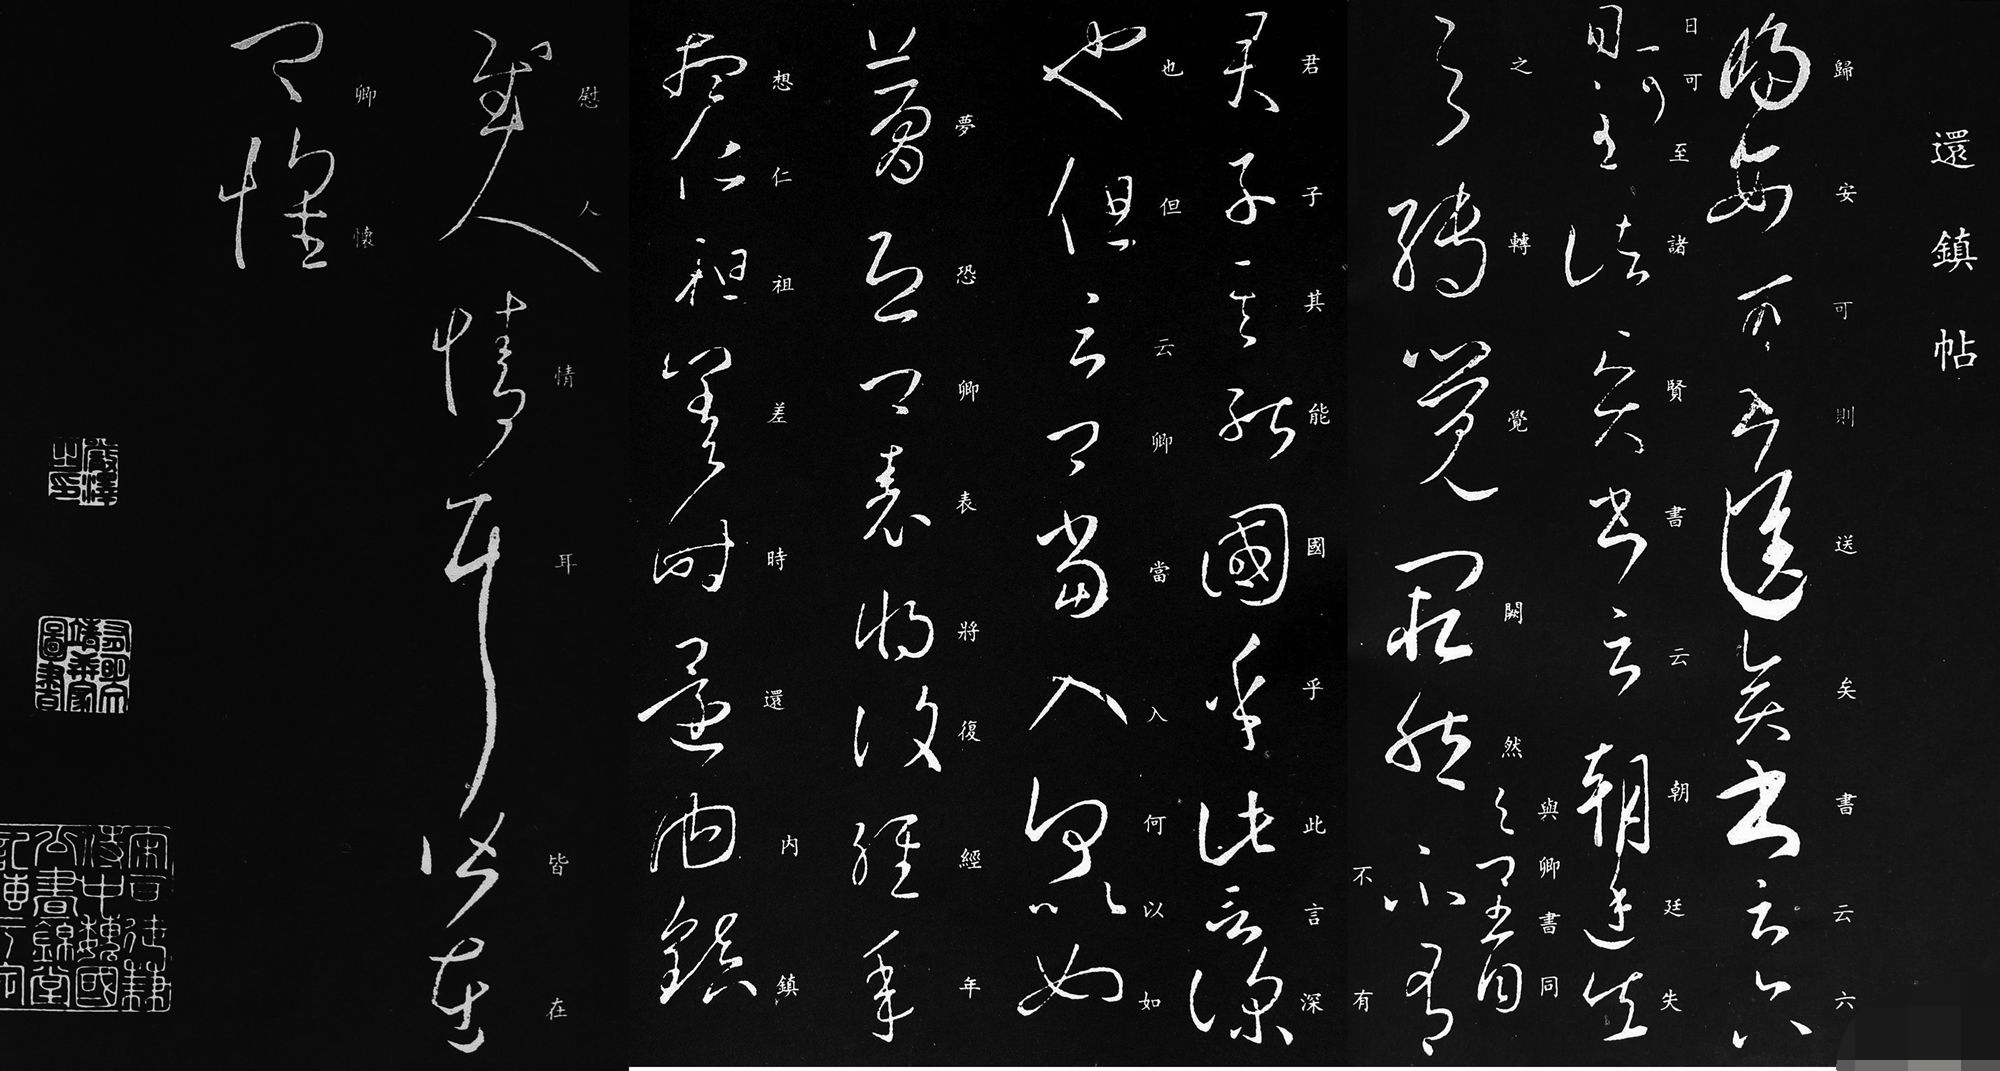 還鎮帖
歸安可則送矣書云六
日可至諸賢書云朝廷失
之轉覺闕然與卿書同不有
君子其能國乎此言深
也但云卿當入何以如
夢恐卿表將復經年
想仁祖差時還內鎮
慰人情耳皆在
卿懷